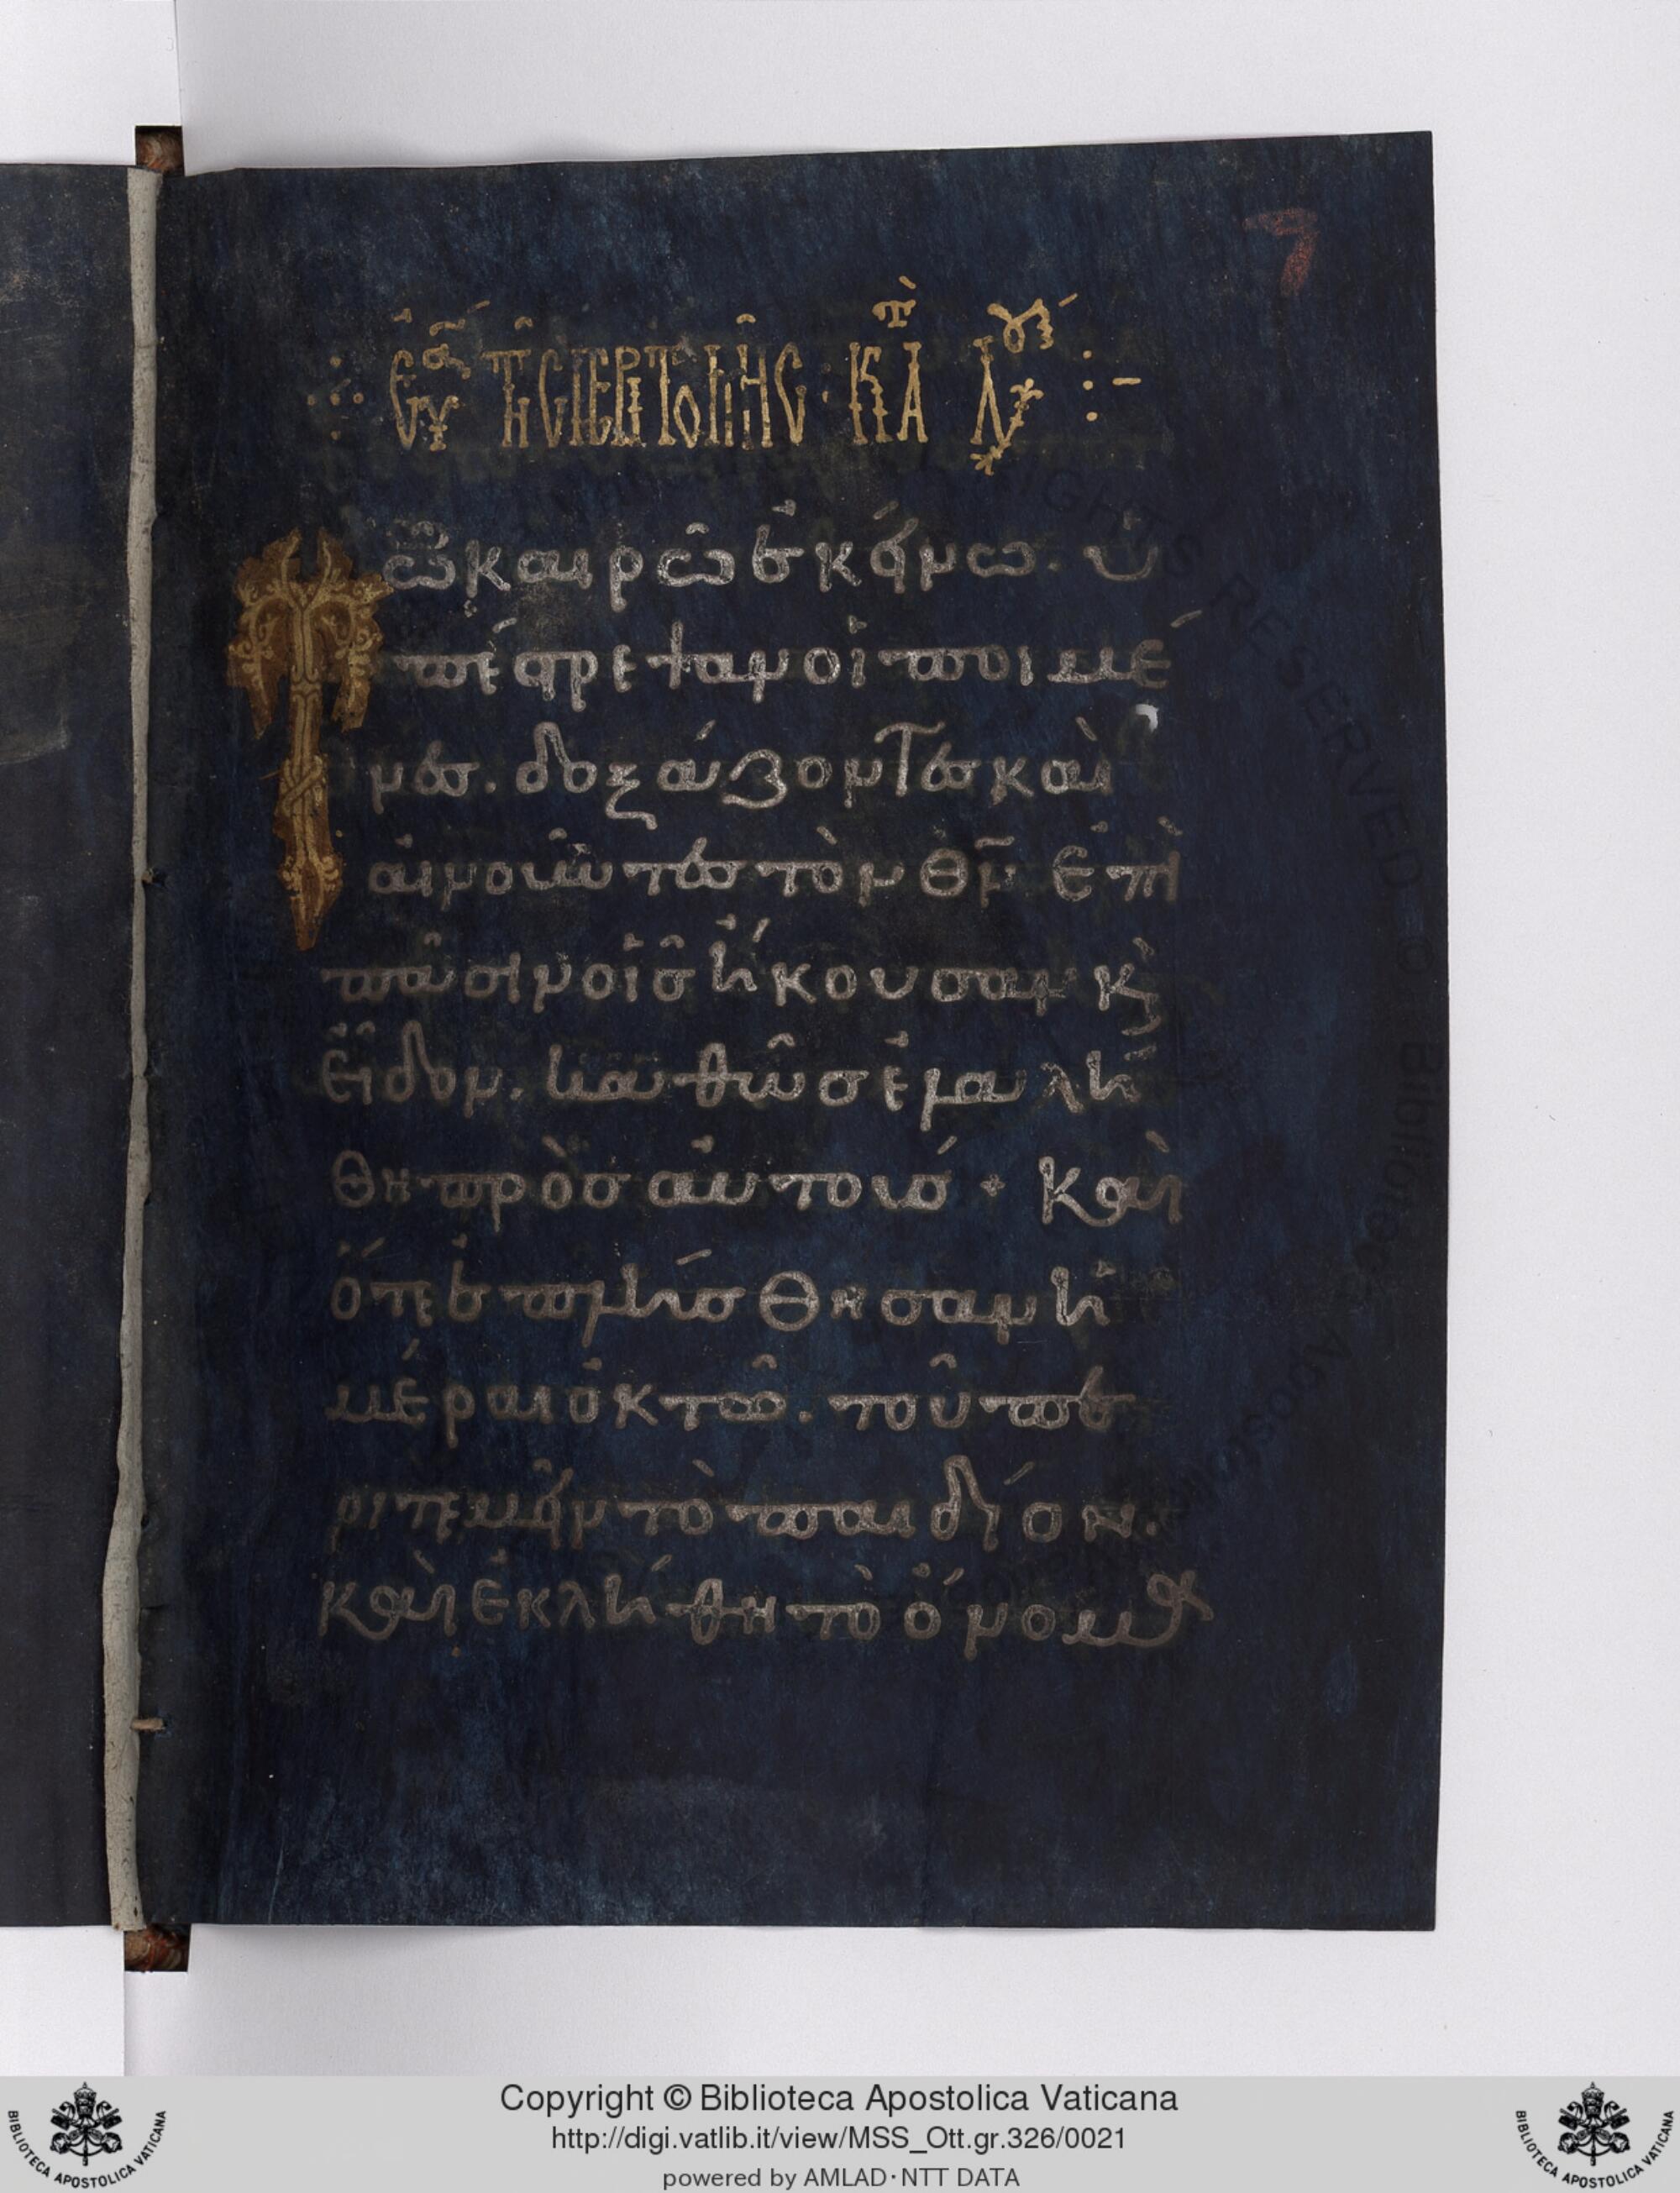 7
Εὐα τῆς περιτομῆς · κατὰ Λουκ :-
Τῶ καιρῶ ἐκείνω. ὑ
πέστρεψαν οἱ ποιμέ
νες. δοξάζοντες καὶ
αἰνοῦντες τὸν θν ἐπὶ
πᾶσιν οἷς ἤκουσαν κ
εἶδον. καθὼς ἐλαλή
θη πρὸς αὐτούς + Καὶ
ὅτε ἐπλήσθησαν ἡ
μέραι ὀκτὼ. τοῦ πε
ριτεμεῖν τὸ παιδίον.
καὶ ἐκλήθη τὸ ὄνομα
Copyright © Biblioteca Apostolica Vaticana
http://digi.vatlib.it/view/MSS_Ott.gr.326/0021
powered by AMLAD·NTT DATA
BIBLIOTECA APOSTOLICA VATICANA
BIBLIOTECA APOSTOLICA VATICANA